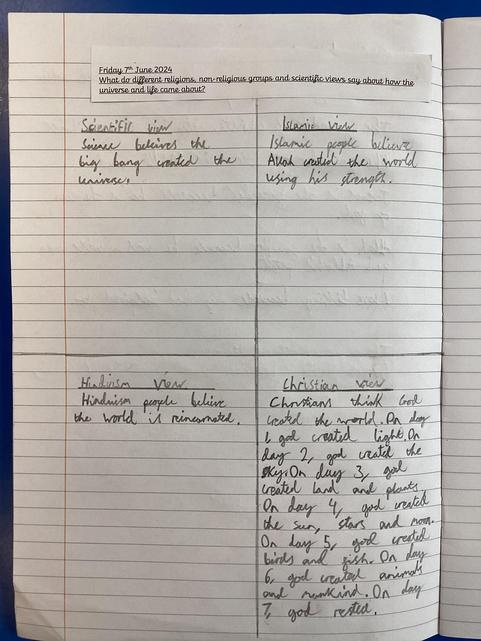 Friday 7th June 2024
What do different religions, non-religious groups and scientific views say about how the
universe and life came about?
Scientific view
Science beleives the
big bang created the
universe.
Islamic view
Islamic people believe
Allah created the world
using his strength.
Hinduism view
Hinduism people believe
the world is reincarnated.
Christian view
Christians think God
created the world. On day
1, god created light. On
day 2, god created the
sky. On day 3, god
created land and plants.
On day 4, god created
the sun, stars and moon.
On day 5, god created
birds and fish. On day
6, god created animals
and mankind. On day
7, god rested.